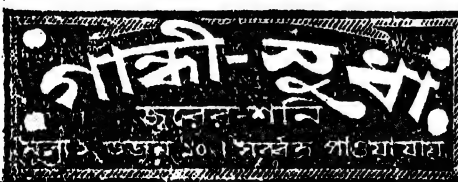 গান্ধী-সুধা
জ্বরের-শনি
মূল্য ১৲ ডজন ১০৲। সর্ব্বত্র পাওয়া যায়